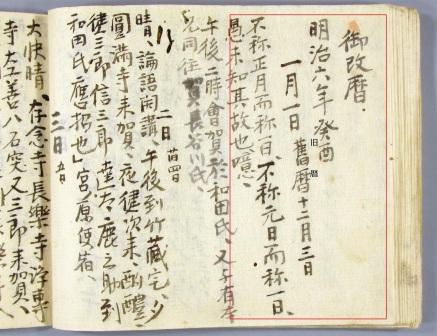 御改暦
明治六年癸酉
一月一日 舊暦十二月三日
旧暦
不称正月而称一日、不称元日而称一日、
愚未知其故也噫、
午後二時會賀於和田氏、又
兄同往賀長谷川氏、
二日 四
晴、論語開講、午後到竹蔵宅、夕
圓満寺来賀、夜健次来、酌醴、
健三郎信三郎達太鹿之助到
和田氏應招也、宮原使宿、
三日 五日
大快晴、存念寺長樂寺浄専
寺大工善八石突又三郎来賀、